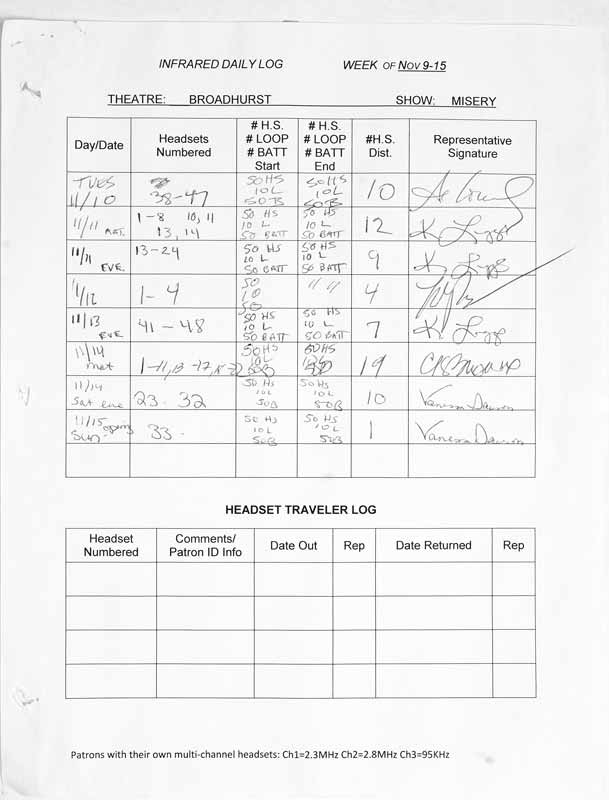 INFRARED DAILY LOG WEEK OF NOV 9-15
THEATRE: BROADHURST SHOW: MISERY
Day/Date
Headsets
Numbered
# H.S.
# LOOP
# BATT
Start
# H.S.
# LOOP
# BATT
End
#H.S.
Dist.
Representative
Signature
TUES
11/10
38-47
50 HS
10 L
50 B
50 HS
10 L
50 B
10
11/11 MAT.
1-8 10, 11
13, 14
50 HS
10 L
50 BATT
50 HS
10 L
50 BATT
12
11/11
EVE.
13-24
50 HS
10 L
50 BATT
50 HS
10 L
50 BATT
9
11/12
1-4
50
10
50
11 11
4
11/13
EVE
41-48
50 HS
10 L
50 BATT
50 HS
10 L
50 BATT
7
11/14
mat
50 HS
10L
50B
50HS
19
11/14
Sat eve
23-32
50 Hs
10L
50B
50 Hs
10L
50B
10
Vanessa Dawson
11/15 opening
Sun
33.
50 Hs
10 L
50B
50 Hs
10 L
50B
1
Vanessa Dawson
HEADSET TRAVELER LOG
Headset
Numbered
Comments/
Patron ID Info
Date Out
Rep
Date Returned
Rep
Patrons with their own multi-channel headsets: Ch1=2.3MHz Ch2=2.8MHz Ch3=95KHz